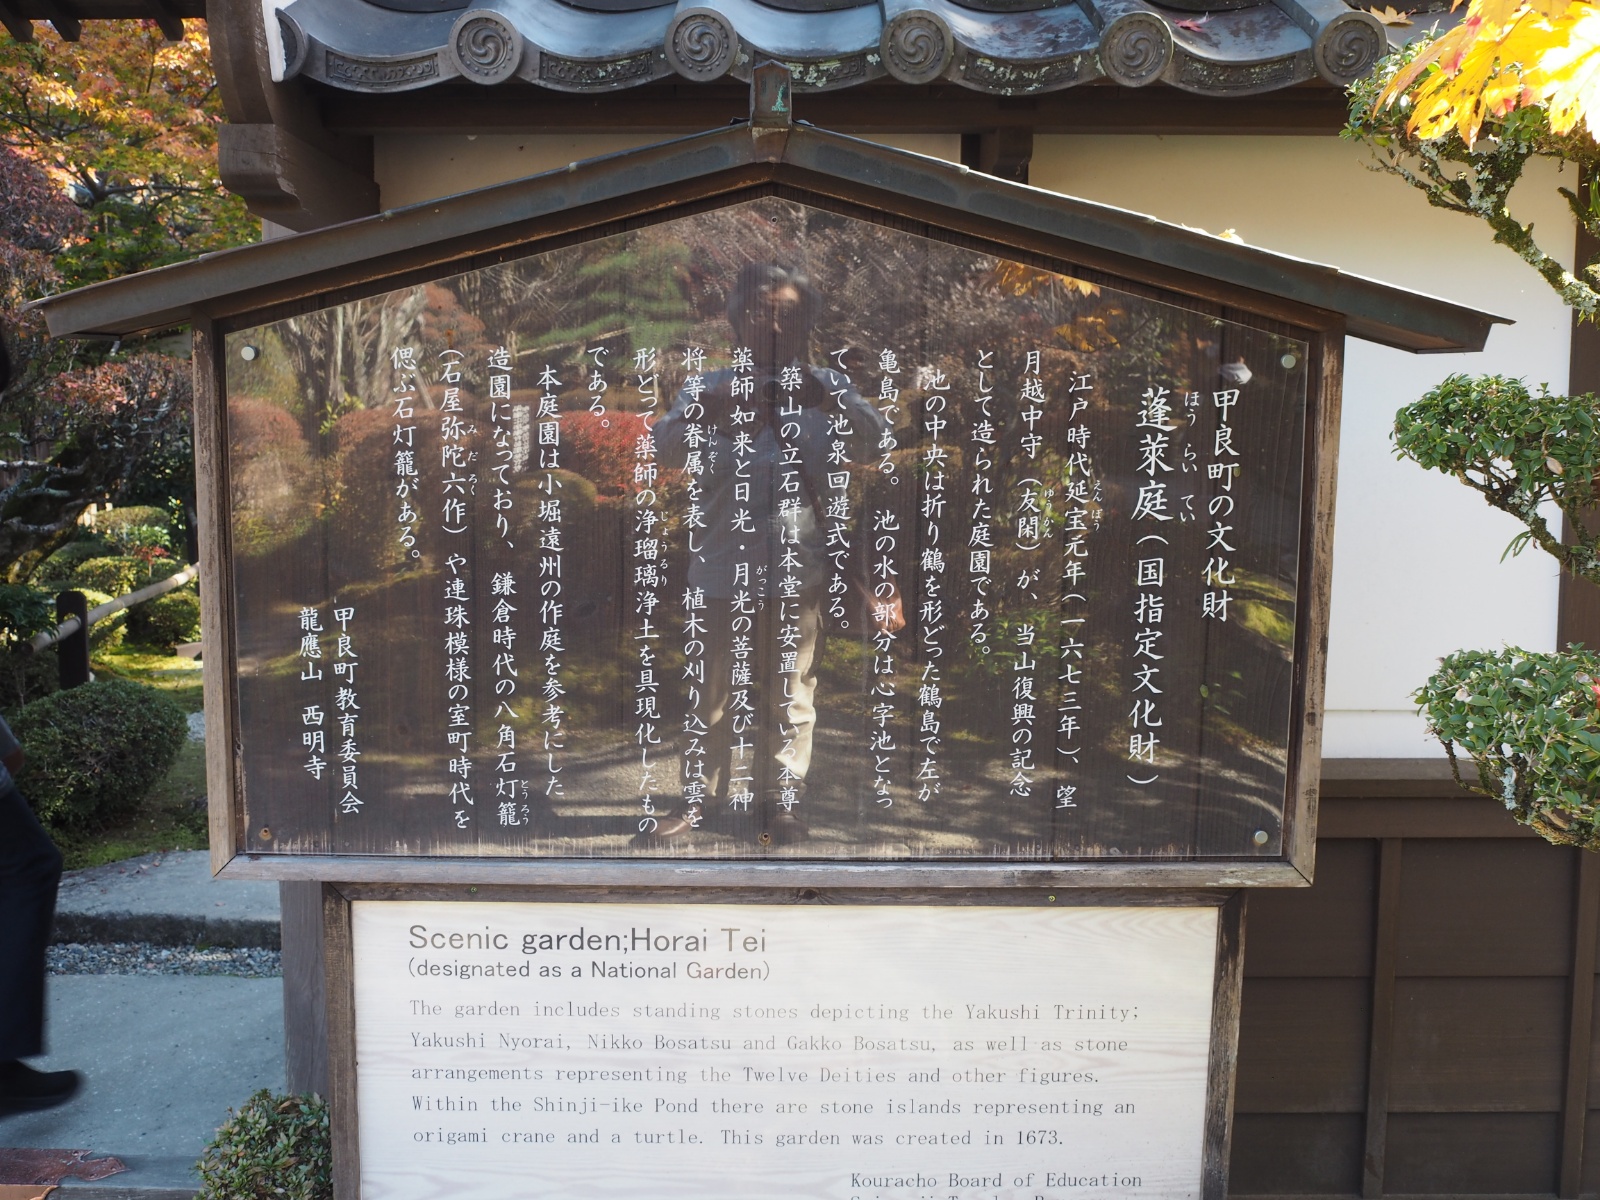 甲良町の文化財
蓬萊庭（国指定文化財）
ほうらいてい
江戸時代延宝元年（一六七三年）、望
えんぽう
月越中守（友閑）が、当山復興の記念
ゆうかん
として造られた庭園である。
池の中央は折り鶴を形どった鶴島で左が
亀島である。池の水の部分は心字池となっ
ていて池泉回遊式である。
築山の立石群は本堂に安置している本尊
薬師如来と日光・月光の菩薩及び十二神
がっこう
将等の眷属を表し、植木の刈り込みは雲を
けんぞく
形どって薬師の浄瑠璃浄土を具現化したもの
じょうるり
である。
本庭園は小堀遠州の作庭を参考にした
造園になっており、鎌倉時代の八角石灯籠
とうろう
（石屋弥陀六作）や連珠模様の室町時代を
みだろく
偲ぶ石灯籠がある。
甲良町教育委員会
龍應山　西明寺
Scenic garden;Horai Tei
(designated as a National Garden)
The garden includes standing stones depicting the Yakushi Trinity;
Yakushi Nyorai, Nikko Bosatsu and Gakko Bosatsu, as well as stone
arrangements representing the Twelve Deities and other figures.
Within the Shinji-ike Pond there are stone islands representing an
origami crane and a turtle. This garden was created in 1673.
Kouracho Board of Education